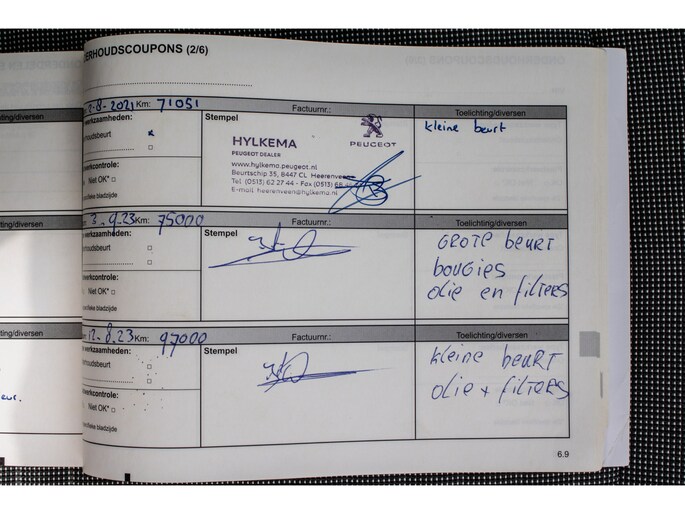 ERHOUDSCOUPONS (2/6)
2-8-2021 Km: 71051 Factuurnr.: Toelichting/diversen
ting/diversen
werkzaamheden:
houdsbeurt
Stempel
HYLKEMA
PEUGEOT DEALER
PEUGEOT
www.hylkema.peugeot.nl
Beurtschip 35, 8447 CL Heerenveen
Tel. (0513) 62 27 44 - Fax (0513)
E-mail: heerenveen@hylkema.nl
kleine beurt
werkcontrole:
Niet OK*
fieke bladzijde
3.9.23 Km: 75000 Factuurnr.: Toelichting/diversen
ting/diversen
werkzaamheden:
houdsbeurt
Stempel
GROTE BEURT
BOUGIES
OLIE EN FILTERS
werkcontrole:
Niet OK*
fieke bladzijde
12.8.23 Km: 97000 Factuurnr.: Toelichting/diversen
ting/diversen
werkzaamheden:
houdsbeurt
Stempel
KLEINE BEURT
OLIE + FILTERS
werkcontrole:
Niet OK*
eur.
fieke bladzijde
6.9